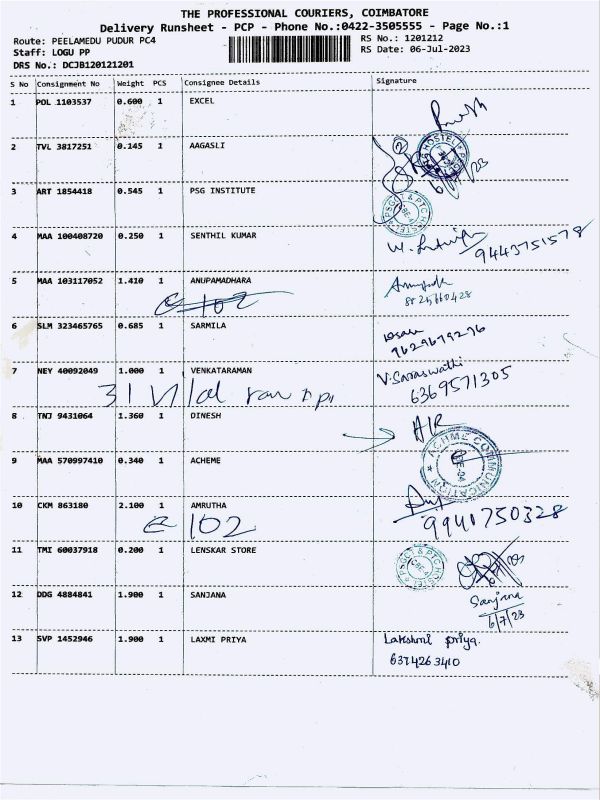 THE PROFESSIONAL COURIERS, COIMBATORE
Delivery Runsheet - PCP - Phone No.:0422-3505555 - Page No.:1
Route: PEELAMEDU PUDUR PC4 RS No.: 1201212
Staff: LOGU PP RS Date: 06-Jul-2023
DRS No.: DCJB120121201
S No Consignment No Weight PCS Consignee Details Signature
1 POL 1103537 0.600 1 EXCEL
2 TVL 3817251 0.145 1 AAGASLI
6/7/23
3 ART 1854418 0.545 1 PSG INSTITUTE
PSGCT & PTC HOSTEL
4 MAA 100408720 0.250 1 SENTHIL KUMAR
9443751578
5 MAA 103117052 1.410 1 ANUPAMADHARA
C-102
6 SLM 323465765 0.685 1 SARMILA
9629679276
7 NEY 40092049 1.000 1 VENKATARAMAN V. Saraswathi
6369571305
8 TNJ 9431064 1.360 1 DINESH
9 MAA 570997410 0.340 1 ACHEME ACHME COMMUNICATION
10 CKM 863180 2.100 1 AMRUTHA
102 9940750328
11 TMI 60037918 0.200 1 LENSKAR STORE PSGCT & PTC HOSTEL
12 DDG 4884841 1.900 1 SANJANA Sanjana
6/7/23
13 SVP 1452946 1.900 1 LAXMI PRIYA Lakshmi priya.
6374263410